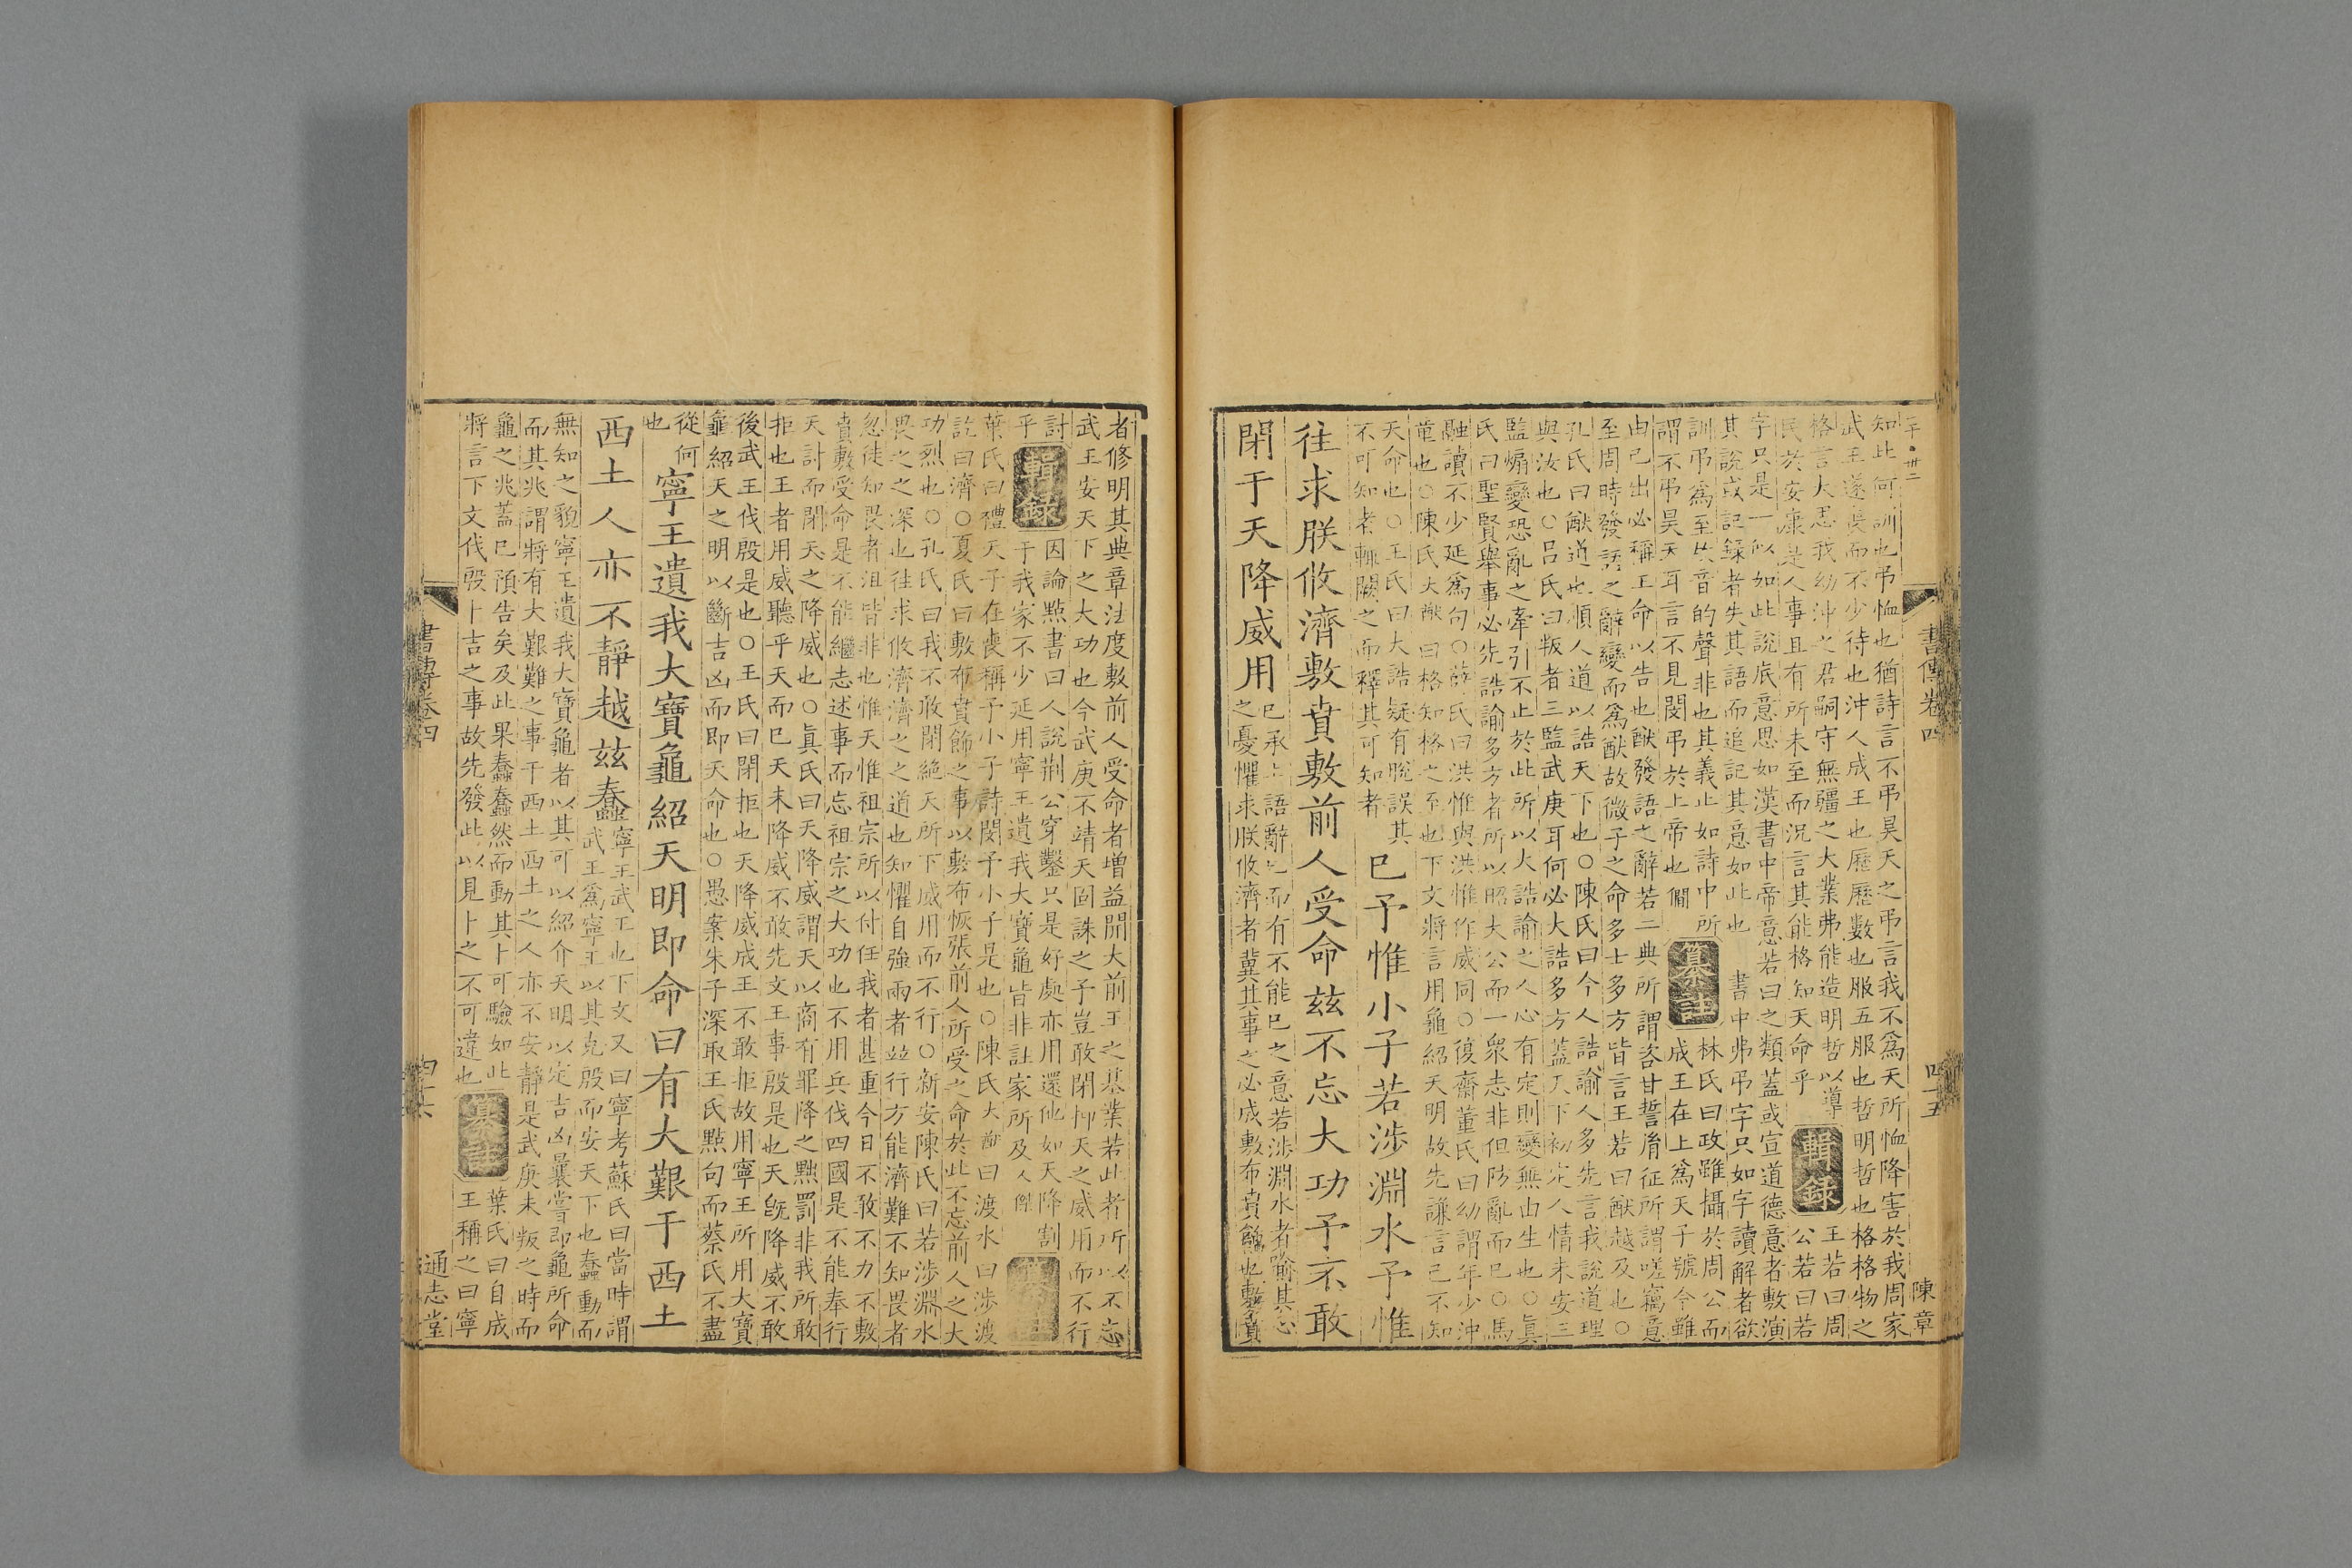 書傳卷四 四十五 陳章
知此何訓也弔恤也猶詩言不弔昊天之弔言我不爲天所恤降害於我周家
武王遂喪而不少待也沖人成王也歷歷數也服五服也哲明哲也格格物之
格言大思我幼沖之君嗣守無疆之大業弗能造明哲以導 輯錄 王若曰周
民於安康是人事且有所未至而況言其能格知天命乎 公若曰若
字只是一似如此說底意思如漢書中帝意若曰之類蓋或宣道德意者敷演
其說或記録者失其語而追記其意如此也 書中弗弔字只如字讀解者欲
訓弔爲至故音的聲非也其義止如詩中所 纂註 林氏曰政雖攝於周公而
謂不弔昊天耳言不見閔弔於上帝也僩 成王在上爲天子號令雖
由己出必稱王命以告也猷發語之辭若二典所謂咨甘誓胤征所謂嗟竊意
至周時發語之辭變而爲猷故微子之命多士多方皆言王若曰猷越及也○
孔氏曰猷道也順人道以誥天下也○陳氏曰今人誥諭人多先言我說道理
與汝也○呂氏曰叛者三監武庚耳何必大誥多方蓋天下初定人情未安三
監煽變恐亂之牽引不止於此所以大誥諭之人心有定則變無由生也○眞
氏曰聖賢舉事必先誥諭多方者所以昭大公而一衆志非但防亂而已○馬
融讀不少延爲句○薛氏曰洪惟與洪惟作威同○復齋董氏曰幼謂年少沖
董也○陳氏大猷曰格知格之至也下文將言用龜紹天明故先謙言己不知
天命也○王氏曰大誥疑有脫誤其
不可知者輒闕之而釋其可知者
已予惟小子若涉淵水予惟
往求朕攸濟敷賁敷前人受命茲不忘大功予不敢
閉于天降威用
已承上語辭已而有不能已之意若涉淵水者喻其心
之憂懼求朕攸濟者冀其事之必成敷布賁飾也敷賁
者修明其典章法度敷前人受命者增益開大前王之基業若此者所以不忘
武王安天下之大功也今武庚不靖天固誅之予豈敢閉抑天之威用而不行
討 輯錄 因論點書曰人說荆公穿鑿只是好處亦用還他如天降割
乎 于我家不少延用寧王遺我大寶龜皆非註家所及人傑
葉氏曰禮天子在喪稱予小子詩閔予小子是也○陳氏大猷曰渡水曰涉渡
訖曰濟○夏氏曰敷布賁飾之事以敷布恢張前人所受之命於此不忘前人之大
功烈也○孔氏曰我不敢閉絶天所下威用而不行○新安陳氏曰若涉淵水
畏之之深也往求攸濟濟之之道也知懼自強兩者並行方能濟難不知畏者
忽徒知畏者沮皆非也惟天惟祖宗所以付任我者甚重今日不敢不力不敷
賁敷受命是不能繼志述事而忘祖宗之大功也不用兵伐四國是不能奉行
天討而閉天之降威也○眞氏曰天降威謂天以商有罪降之黜罰非我所敢
拒也王者用威聽乎天而已天未降威不敢先文王事殷是也天既降威不敢
後武王伐殷是也○王氏曰閉拒也天降威成王不敢拒故用寧王所用大寶
龜紹天之明以斷吉凶而即天命也○愚案朱子深取王氏點句而蔡氏不盡
從何
也
寧王遺我大寶龜紹天明即命曰有大艱于西土
西土人亦不靜越茲蠢
寧王武王也下文又曰寧考蘇氏曰當時謂
武王爲寧王以其克殷而安天下也蠢動而
無知之貌寧王遺我大寶龜者以其可以紹介天明以定吉凶曩嘗即龜所命
而其兆謂將有大艱難之事于西土西土之人亦不安靜是武庚未叛之時而
龜之兆蓋已預告矣及此果蠢蠢然而動其卜可驗如此 纂註 葉氏曰自成
將言下文伐殷卜吉之事故先發此以見卜之不可違也 王稱之曰寧
書傳卷四 四十六 通志堂